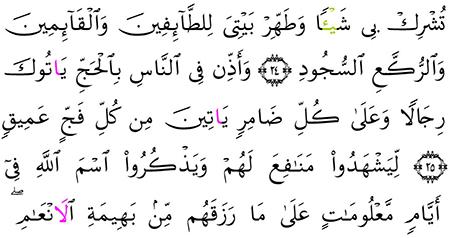 تُشْرِكْ بِى شَيْـٔٗا وَطَهِّرْ بَيْتِىَ لِلطَّآئِفِينَ وَالْقَآئِمِينَ
وَالرُّكَّعِ السُّجُودِ ۝٢٤ وَأَذِّن فِى النَّاسِ بِالْحَجِّ يَاتُوكَ
رِجَالًا وَعَلَىٰ كُلِّ ضَامِرٍ يَاتِينَ مِن كُلِّ فَجٍّ عَمِيقٍ
۝٢٥ لِّيَشْهَدُوا۟ مَنَـٰفِعَ لَهُمْ وَيَذْكُرُوا۟ اسْمَ اللَّهِ فِىٓ
أَيَّامٍ مَّعْلُومَـٰتٍ عَلَىٰ مَا رَزَقَهُم مِّنۢ بَهِيمَةِ الَانْعَـٰمِ ۖ